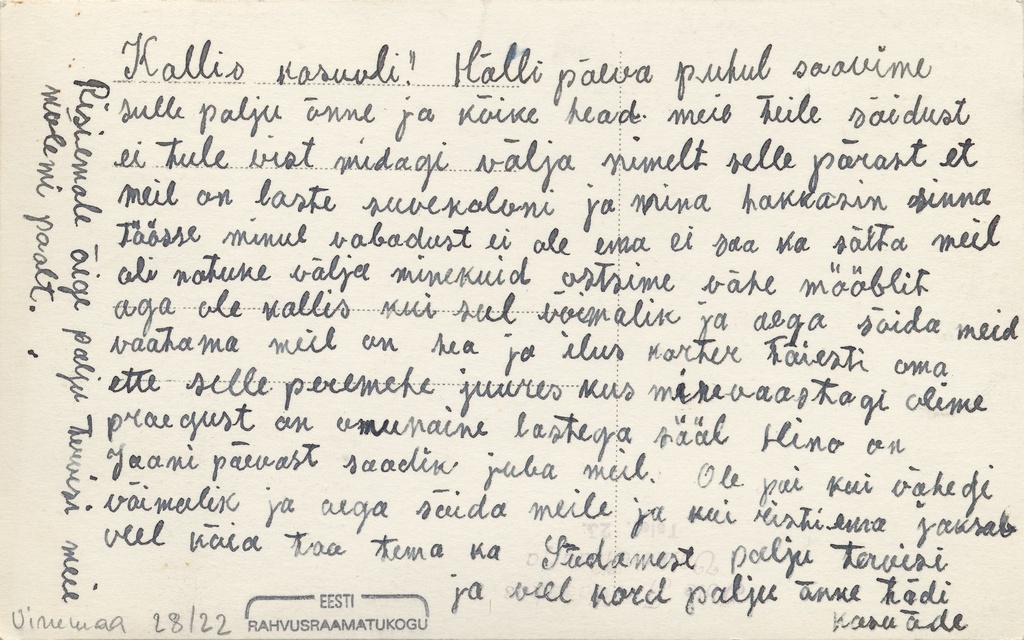 Kallis kasuoli! Hälli päeva puhul saavime
sulle palju õnne ja kõike head. meie teile sõidust
ei tule vist midagi välja nimelt selle pärast et
meil on laste suvekoloni ja mina hakkasin sinna
töösse minul vabadust ei ole ema ei saa ka sõita meil
oli natuke välja minekuid ostsime vähe mööblit
aga ole kallis kui sul võimalik ja aega sõida meid
vaatama meil on hea ja ilus korter täiesti oma
ette selle peremehe juures kus minevaastagi olime
praegust on omunaine lastega sääl Hino on
Jaani päevast saadik juba meil. Ole pai kui vähegi
võimalik ja aega sõida meile ja kui ristiema jaksab
veel käia too tema ka Südamest palju tervisi
ja veel kord palju õnne tädi
kasu õde
Ristiemale õige palju tervisi meie
molemi poolt.
Virumaa 28/22
EESTI
RAHVUSRAAMATUKOGU